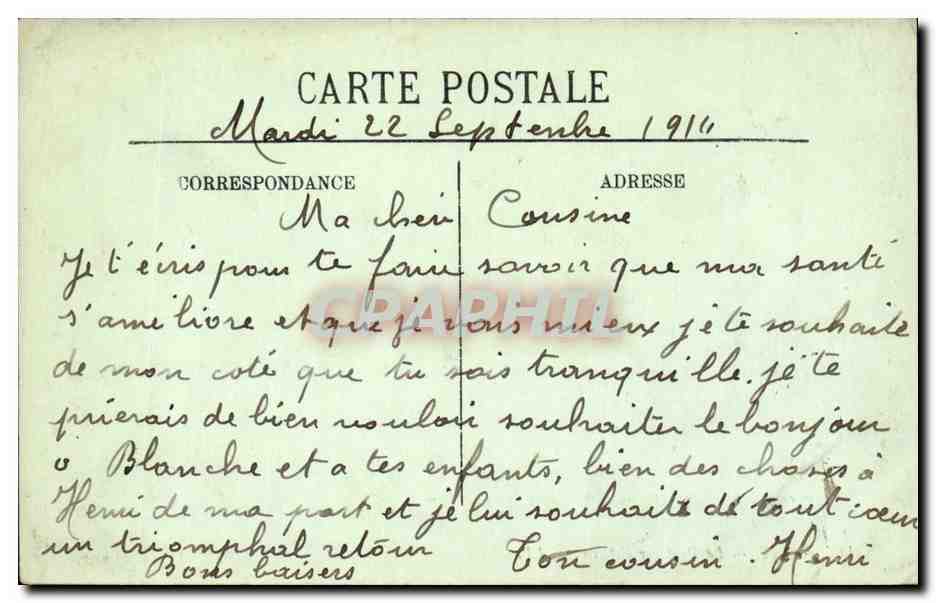 CARTE POSTALE
Mardi 22 Septembre 1914
CORRESPONDANCE ADRESSE
Ma chère Cousine
Je t'écris pour te faire savoir que ma santé
s'améliore et que je vais mieux je te souhaite
de mon coté que tu sois tranquille. je te
prierais de bien vouloir souhaiter le bonjour
a Blanche et a tes enfants, bien des choses à
Henri de ma part et je lui souhaite de tout cœur
un triomphal retour Ton cousin. Henri
Bons baisers
CPAPHIL